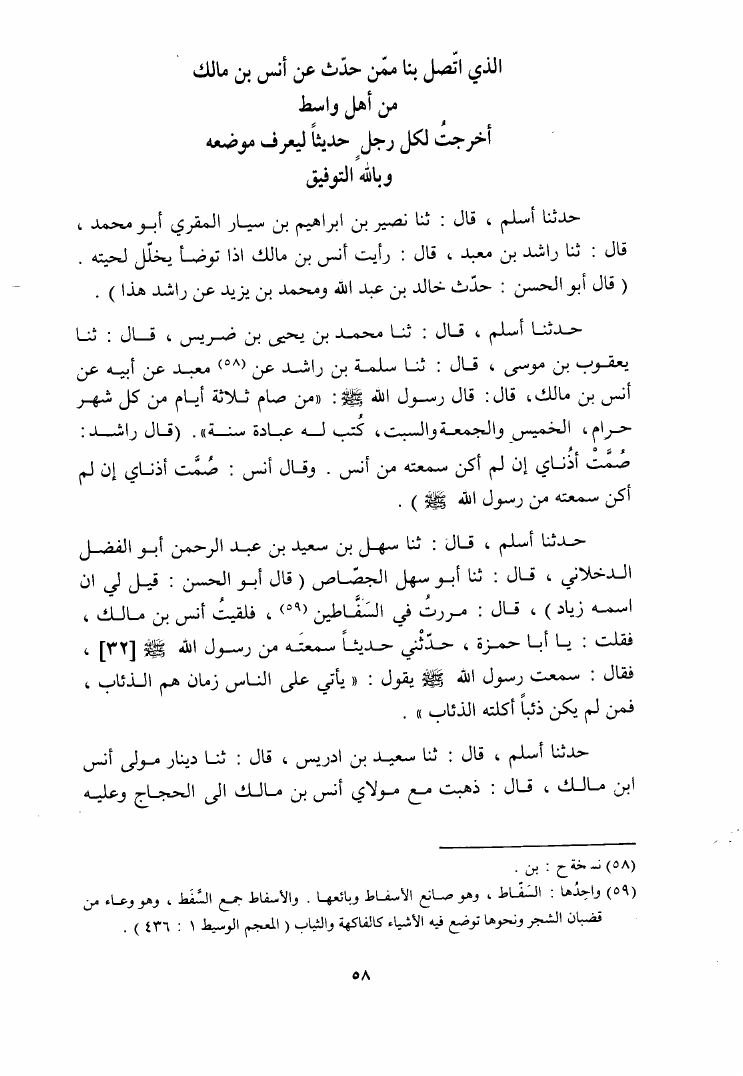 الذي اتّصل بنا ممّن حدّث عن أنس بن مالك
من أهل واسط
أخرجتُ لكل رجلٍ حديثاً ليعرف موضعه
وبالله التوفيق
حدثنا أسلم ، قال : ثنا نصير بن ابراهيم بن سيار المقري أبو محمد ،
قال : ثنا راشد بن معبد ، قال : رأيت أنس بن مالك اذا توضأ يخلّل لحيته .
( قال أبو الحسن : حدّث خالد بن عبد الله ومحمد بن يزيد عن راشد هذا ) .
حدثنا أسلم ، قال : ثنا محمد بن يحيى بن ضريس ، قال : ثنا
يعقوب بن موسى ، قال : ثنا سلمة بن راشد عن (٥٨) معبد عن أبيه عن
أنس بن مالك، قال: قال رسول الله ﷺ: «من صام ثلاثة أيام من كل شهر
حرام، الخميس والجمعة والسبت، كُتب له عبادة سنة». (قال راشد:
صُمَّتْ أذُناي إن لم أكن سمعته من أنس . وقال أنس : صُمَّت أذناي إن لم
أكن سمعته من رسول الله ﷺ ) .
حدثنا أسلم ، قال : ثنا سهل بن سعيد بن عبد الرحمن أبو الفضل
الدخلاني ، قال : ثنا أبو سهل الجصّاص ( قال أبو الحسن : قيل لي ان
اسمه زياد ) ، قال : مررتُ في السَفَّاطين (٥٩) ، فلقيتُ أنس بن مالك ،
فقلت : يا أبا حمزة ، حدّثْني حديثاً سمعتَه من رسول الله ﷺ [٣٢] ،
فقال : سمعت رسول الله ﷺ يقول : « يأتي على الناس زمان هم الذئاب ،
فمن لم يكن ذئباً أكلته الذئاب » .
حدثنا أسلم ، قال : ثنا سعيد بن ادريس ، قال : ثنا دينار مولى أنس
ابن مالك ، قال : ذهبت مع مولاي أنس بن مالك الى الحجاج وعليه
(٥٨) نسخة ح : بن .
(٥٩) واحِدُها : السَفّاط ، وهو صانع الأسفاط وبائعها . والأسفاط جمع السَّفَط ، وهو وعاء من
قضبان الشجر ونحوها توضع فيه الأشياء كالفاكهة والثياب ( المعجم الوسيط ١ : ٤٣٦ ) .
٥٨